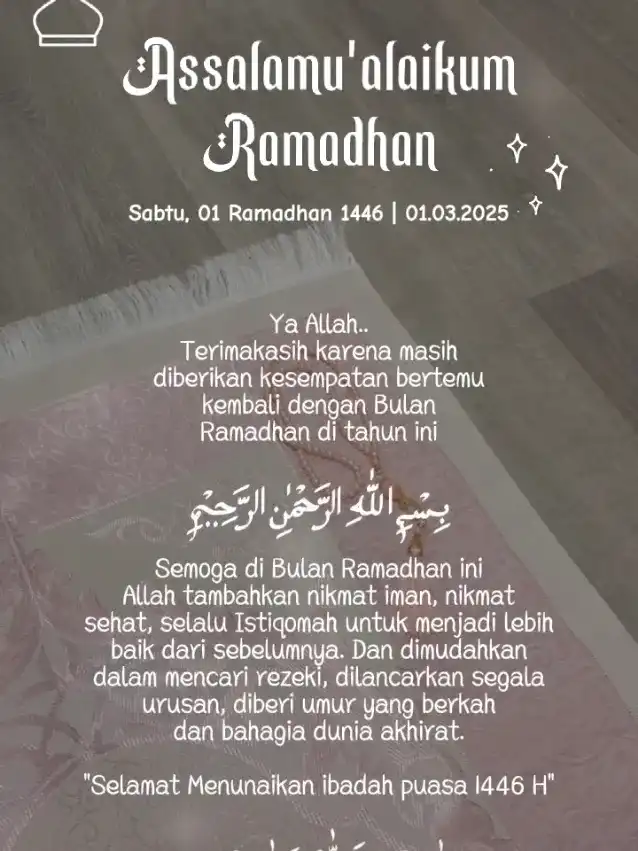 Assalamu'alaikum
Ramadhan
Sabtu, 01 Ramadhan 1446 | 01.03.2025
Ya Allah..
Terimakasih karena masih
diberikan kesempatan bertemu
kembali dengan Bulan
Ramadhan di tahun ini
بِسْمِ اللّٰهِ الرَّحْمٰنِ الرَّحِيْمِ
Semoga di Bulan Ramadhan ini
Allah tambahkan nikmat iman, nikmat
sehat, selalu Istiqomah untuk menjadi lebih
baik dari sebelumnya. Dan dimudahkan
dalam mencari rezeki, dilancarkan segala
urusan, diberi umur yang berkah
dan bahagia dunia akhirat.
"Selamat Menunaikan ibadah puasa 1446 H"